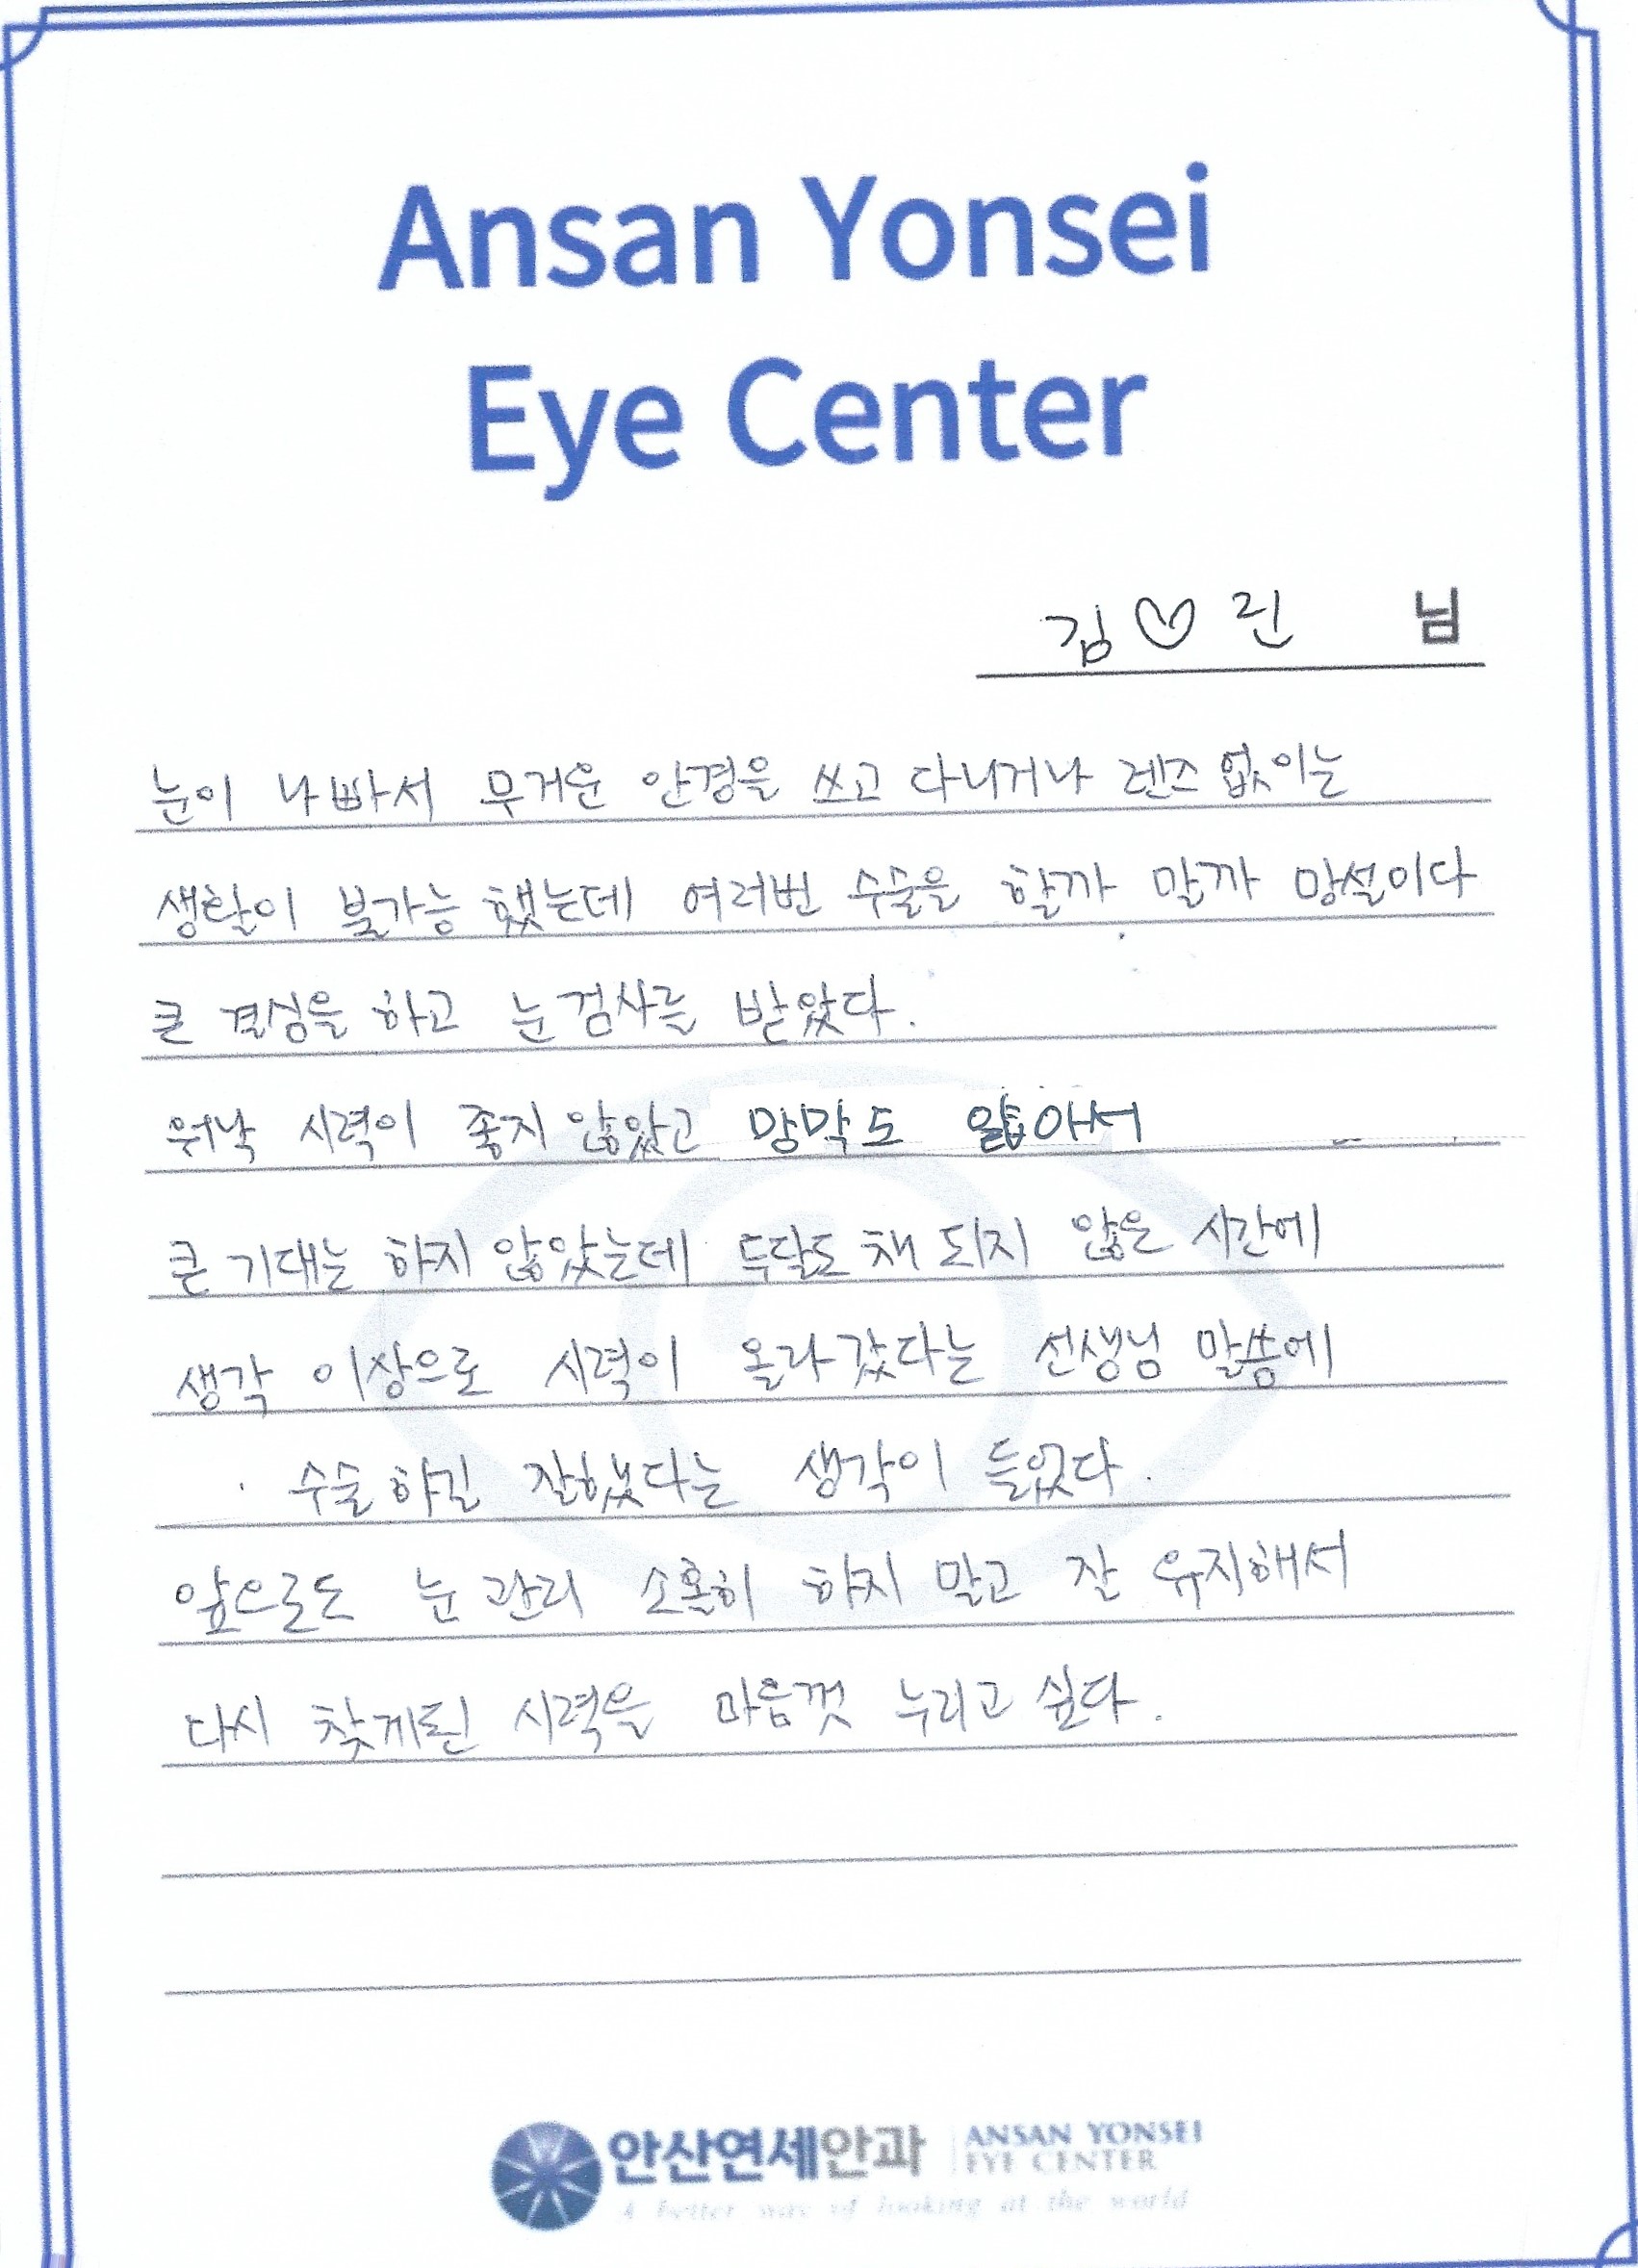 Ansan Yonsei
Eye Center
김♡린 님
눈이 나빠서 무거운 안경을 쓰고 다니거나 렌즈 없이는
생활이 불가능 했는데 여러번 수술을 할까 말까 망설이다
큰 결심을 하고 눈 검사를 받았다.
워낙 시력이 좋지 않았고 망막도 얇아서
큰 기대는 하지 않았는데 두달도 채 되지 않은 시간에
생각 이상으로 시력이 올라갔다는 선생님 말씀에
수술하길 잘했다는 생각이 들었다.
앞으로도 눈 관리 소홀히 하지 말고 잘 유지해서
다시 찾게된 시력을 마음껏 누리고 싶다.
안산연세안과
ANSAN YONSEI
EYE CENTER
A better way of looking at the world